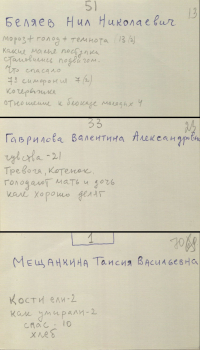 51
13
Беляев Нил Николаевич
мороз + голод + темнота (13/2)
какие малые поступки
становились подвигом.
Что спасало
7я симфония 7 (2)
кочерыжки
отношение к блокаде
33
Гаврилова Валентина Александровна
чувства - 21
Тревога, котенок.
голодают мать и дочь
как хорошо делят
1
Мещанкина Таисия Васильевна
Кости ели - 2
как умирали - 2
спас - 10
хлеб